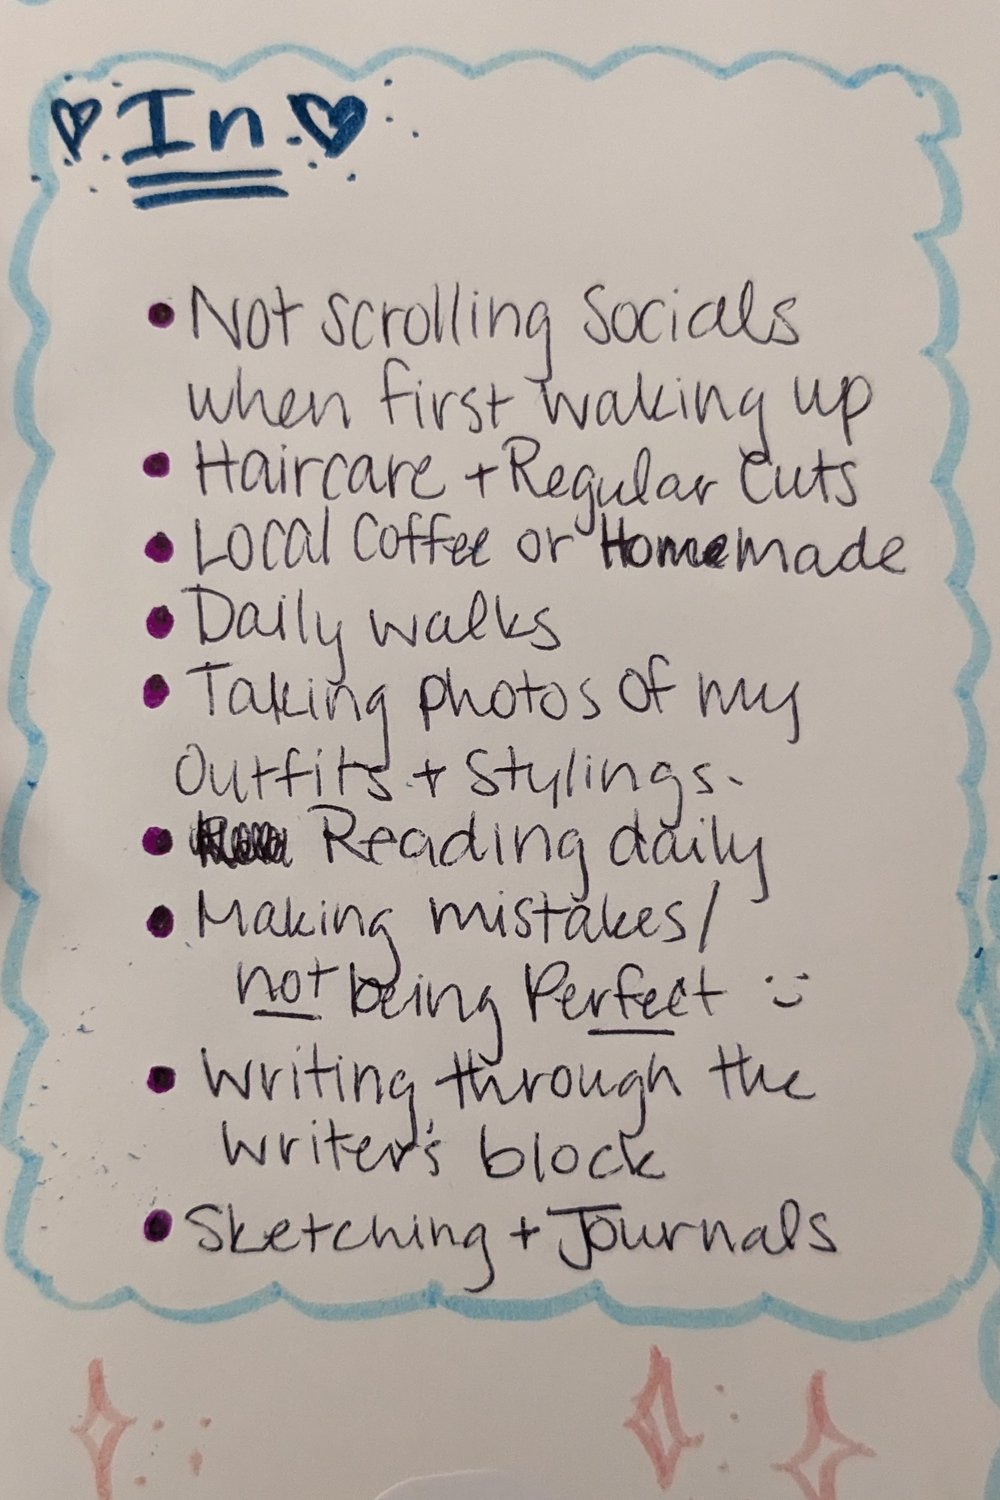 In
• Not scrolling Socials
when first waking up
• Haircare + Regular Cuts
• Local Coffee or Homemade
• Daily walks
• Taking photos of my
Outfits + Stylings.
• Reading daily
• Making mistakes/
not being Perfect :)
• Writing through the
writer's block
• Sketching + Journals